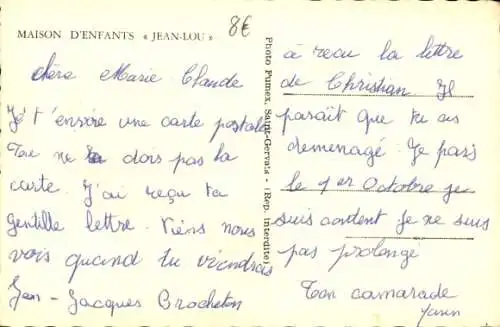 MAISON D'ENFANTS « JEAN-LOU »
8€
chère Marie Claude
Je t'envoie une carte postale
Tu ne dois pas la
carte. J'ai reçu ta
gentille lettre. Viens nous
vois quand tu viendrais
Jean-Jacques Brocheton
Photo Fumex, Saint-Gervais - (Rep. interdite)
à recu la lettre
de Christian. Il
paraît que tu as
demenagé. Je pars
le 1er Octobre je
suis content je ne suis
pas prolonge
Ton camarade